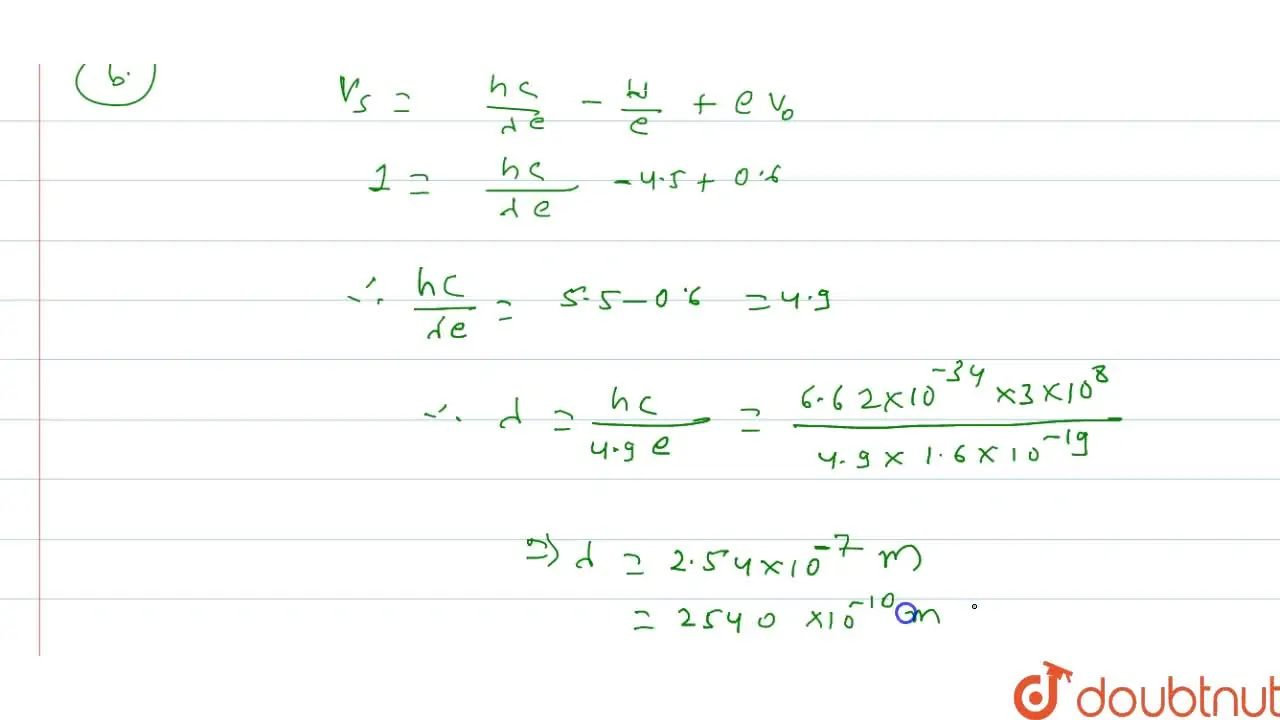 b.
Vs = hc/λe - W/e + eV₀
1 = hc/λe - 4.5 + 0.6
∴ hc/λe = 5.5 - 0.6 = 4.9
∴ λ = hc/4.9e = 6.62×10⁻³⁴ ×3×10⁸/4.9× 1.6×10⁻¹⁹
⇒ λ = 2.54×10⁻⁷ m
= 2540 ×10⁻¹⁰ m
doubtnut